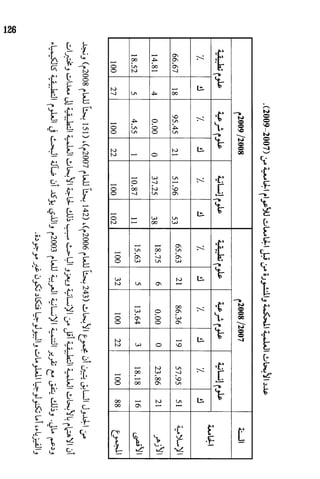 عدد الأبحاث العلمية المحكمة والمنشورة من قبل الجامعات للأعوام الجامعية من (2007-2009).
السنة 2007/ 2008م 2008/ 2009م
الجامعة علوم إنسانية علوم شرعية علوم تطبيقية علوم إنسانية علوم شرعية علوم تطبيقية
ك ٪ ك ٪ ك ٪ ك ٪ ك ٪ ك ٪
الإسلامية 51 57.95 19 86.36 21 65.63 53 51.96 21 95.45 18 66.67
الأزهر 21 23.86 0 0.00 6 18.75 38 37.25 0 0.00 4 14.81
الأقصى 16 18.18 3 13.64 5 15.63 11 10.87 1 4.55 5 18.52
المجموع 88 100 22 100 32 100 102 100 22 100 27 100
من الجدول السابق يتبين أن مجموع الأبحاث (243 بحثاً للعام 2006م)، (42 بحثاً للعام 2007م)، (151 بحثاً للعام 2008م) ونجد
أن الاهتمام بالأبحاث العلمية التطبيقية أقل من الإنسانية ويعزو الباحث سبب ذلك لحاجة الأبحاث العلمية التطبيقية إلى معدات ومختبرات
ودعم مالي. وذلك يتفق مع تقرير التنمية الإنسانية العربية للعام 2003م والذي يؤكد أن ضآلة البحث في العلوم التطبيقية كالكيمياء
والفيزياء، أما تكنولوجيا المعلومات والبيولوجيا تكاد تكون غير موجودة.
126